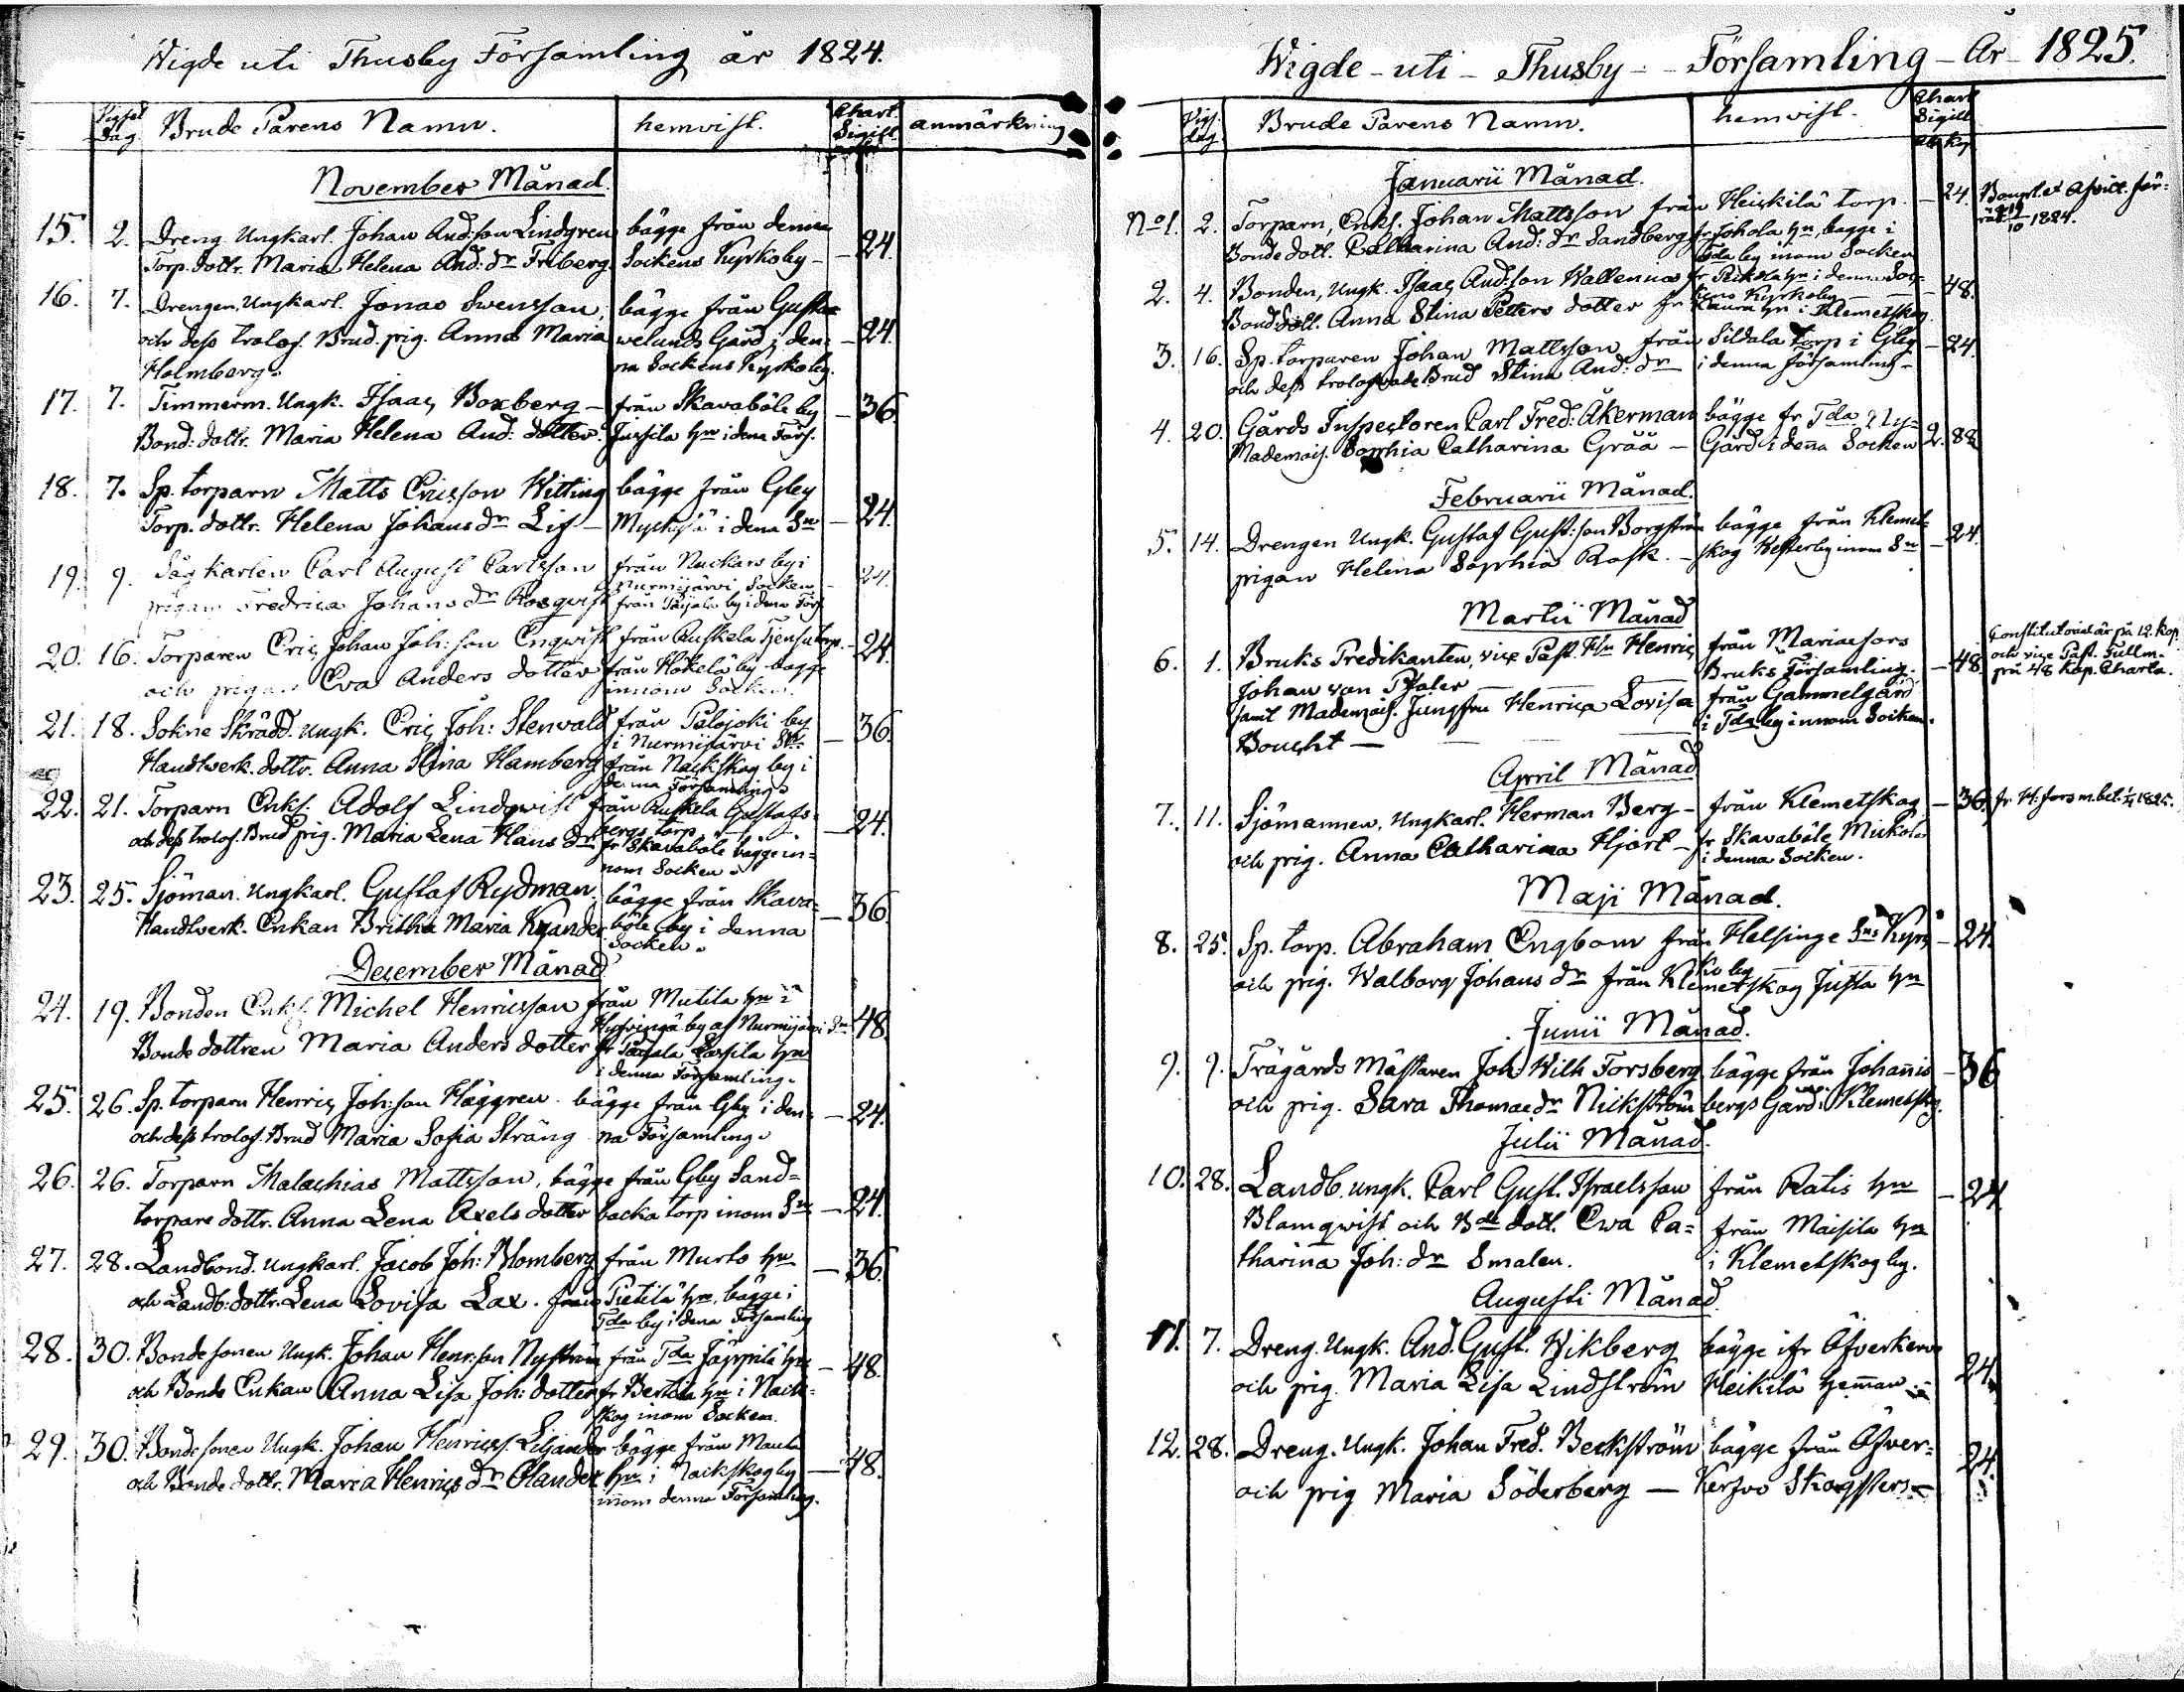 Wigde uti Thusby Församling år 1824.
Vigsel Dag
Brude Parens Namn.
hemvist.
Chart. Sigill.
anmärkning
November Månad.
15. 2. Dreng Ungkarl. Johan And:son Lindgren bägge från denna
Torp. dottr. Maria Helena And: dr Friberg. Sockens Kyrkoby — 24
16. 7. Drengen Ungkarl. Jonas Swensson, bägge från Gusta-
och dess trolof. Brud. pig. Anna Maria welunds Gård i den- — 24.
Holmberg. na Sockens Kyrkoby.
17. 7. Timmerm. Ungk. Isaac Boxberg — från Skavaböle by — 36
Bond: dottr. Maria Helena And: dotter. Jussila hn i dena Förs.
18. 7. Sp. torparn Matts Ericsson Witting bägge från Gby
Torp. dottr. Helena Johans dr Lif — i dena Sn — 24.
19. 9. Carl August Carlsson från Nackars by i
Nurmijärvi Socken — 24.
pigan Fredrica Johans dr Rosqvist från Paijala by i dena Förs.
20. 16. Torparen Eric Johan Joh:son Engwist från Ruskela torp. — 24.
och pigan Eva Anders dotter från by bägge
innom Socken.
21. 18. Sokne Skrädd. Ungk. Eric Joh: Stenvald från Palojoki by
i Nurmijärvi Sn. — 36.
Handtwerk. dottr. Anna Stina Hamberg från Nackskog by i
denna Församling.
22. 21. Torparn Enkl. Adolf Lindqwist från Ruskela Gustafs-
bergs torp — 24.
och dess trolof. Brud pig. Maria Lena Hans dr fr Skavaböle bägge in-
nom Socken.
23. 25. Sjöman. Ungkarl. Gustaf Rydman. bägge från Skava-
Handtwerk. Enkan Britha Maria Kyander böle by i denna — 36.
Socken.
December Månad
24. 19. Bonden Enkl. Michel Henricsson från Mutila hn i
Hyfvingä by af Nurmijärvi Sn 48.
Bonde dottren Maria Anders dotter fr Paijala hn
i denna Församling.
25. 26. Sp. torparn Henric Joh:son Häggren. bägge från Gby i den- — 24.
och dess trolof. Brud Maria Sofia Sträng na Församling.
26. 26. Torparn Malachias Mattsson, bägge från Gby Sand-
torpare dottr. Anna Lena Axels dotter backa torp inom Sn — 24.
27. 28. Landbond. Ungkarl. Jacob Joh: Blomberg från Murto hn — 36.
och Landb: dottr. Lena Lovisa Lax. från Pietilä hn, bägge i
Tda by i dena Församling
28. 30. Bondesonen Ungk. Johan Henr:son Nyström från Tda Jäppilä hn — 48.
och Bonde Enkan Anna Lisa Joh: dotter fr Bertila hn i Nack-
skog inom Socken.
29. 30. Bondesonen Ungk. Johan Henricss. Liljander bägge från
och Bonde dottr. Maria Henrics dr Olander hn i Nackskog by — 48.
innom denna Församling.
Wigde - uti - Thusby - - Församling - År - 1825.
Vigs. dag
Brude Parens Namn.
hemvist.
Chart Sigill
Januarii Månad.
No 1. 2. Torparn, Enkl. Johan Mattsson från Heickilä torp. — 24.
1824.
Bonde dott. Catharina And: dr Sandberg fr Johola hn, bägge i
Tda by inom Socken
2. 4. Bonden, Ungk. Isaac And:son Wallenius fr hn i denna Soc-
kens Kyrkoby — 48.
Bond dott. Anna Stina Petters dotter fr hn i Klemetskog.
3. 16. Sp. torparen Johan Mattsson från Sildala torp i Gby — 24.
och dess trolofvade Brud Stina And: dr i denna Församling —
4. 20. Gårds Inspectoren Carl Fred: Åkerman bägge fr Tda Ny-
Mademois. Sophia Catharina Gråå — Gård i dena Socken 2. 88
Februarii Månad.
5. 14. Drengen Ungk. Gustaf Gust:son Borgström bägge från Klemet-
pigan Helena Sophia Rask. — skog by inom Sn — 24.
Martii Månad
6. 1. Bruks Predikanten, vice Past. Hr Henric från Mariæfors
Johan von Pfaler Bruks Församling. — 48.
Constitutorial är på 12. kop.
och vice Past. Fullm.
på 48 kop. Charta.
samt Mademois. Jungfru Henrica Lovisa från Gammelgård
Boucht — i Tda by innom Socken.
April Månad
7. 11. Sjömannen, Ungkarl. Herman Berg — från Klemetskog — 36. fr H:fors m. bet. 1825.
och pig. Anna Catharina Hjort — fr Skavaböle Mickola
i denna Socken.
Maji Månad.
8. 25. Sp. torp. Abraham Engbom från Helsinge Sns Kyr- — 24.
ko by
och pig. Walborg Johans dr från Klemetskog Jusla hn
Junii Månad.
9. 9. Trägårds Mästaren Joh: Wilh Forsberg bägge från Johannis- — 36
och pig. Sara Thomæ dr Nickström bergs Gård i Klemetskog.
Julii Månad.
10. 28. Landb. ungk. Carl Gust. Israelsson från Ratis hn — 24
Blomqwist och Bde dott. Ewa Ca- från Maisila hn
tharina Joh: dr Smalen. i Klemetskog by.
Augusti Månad
11. 7. Dreng Ungk. And. Gust. Wikberg bägge ifr Öfverkervo
och pig. Maria Lisa Lindström Heikilä hemman. — 24.
12. 28. Dreng. Ungk. Johan Fred. Beckström bägge från Öfver-
och pig Maria Söderberg — Kervo Skogsters — 24.